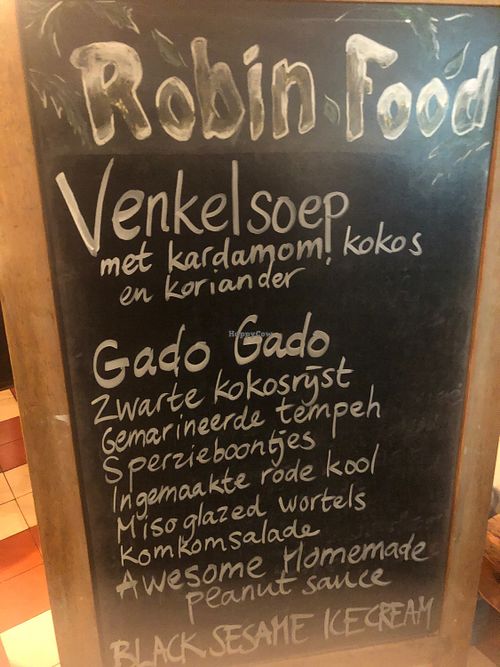 Robin Food
Venkelsoep
met kardamom, kokos
en koriander
Gado Gado
Zwarte kokosrijst
Gemarineerde tempeh
Sperzieboontjes
Ingemaakte rode kool
Miso glazed wortels
Komkomsalade
Awesome Homemade
peanut sauce
BLACK SESAME ICECREAM
HappyCow